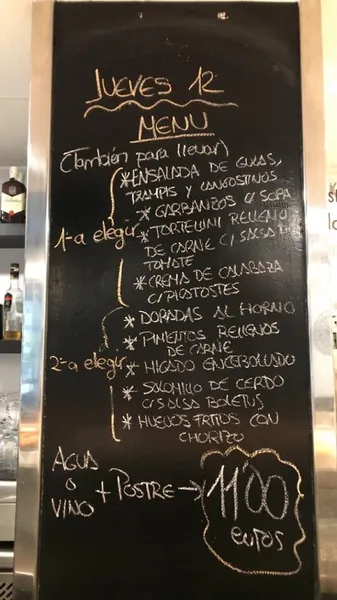 JUEVES 12
MENU
(También para llevar)
1-a elegir
*ENSALADA DE GULAS,
TRAMPIS Y LANGOSTINOS
* GARBANZOS C/ SOPA
*TORTELLINI RELLENO
DE CARNE C/ SALSA
TOMATE
*CREMA DE CALABAZA
C/PICATOSTES
2-a elegir
* DORADAS AL HORNO
* PIMIENTOS RELLENOS
DE CARNE
* HIGADO ENCEBOLLADO
* SOLOMILLO DE CERDO
C/SALSA BOLETUS
* HUEVOS FRITOS CON
CHORIZO
AGUA
O
VINO
+ POSTRE →
11'00
euros